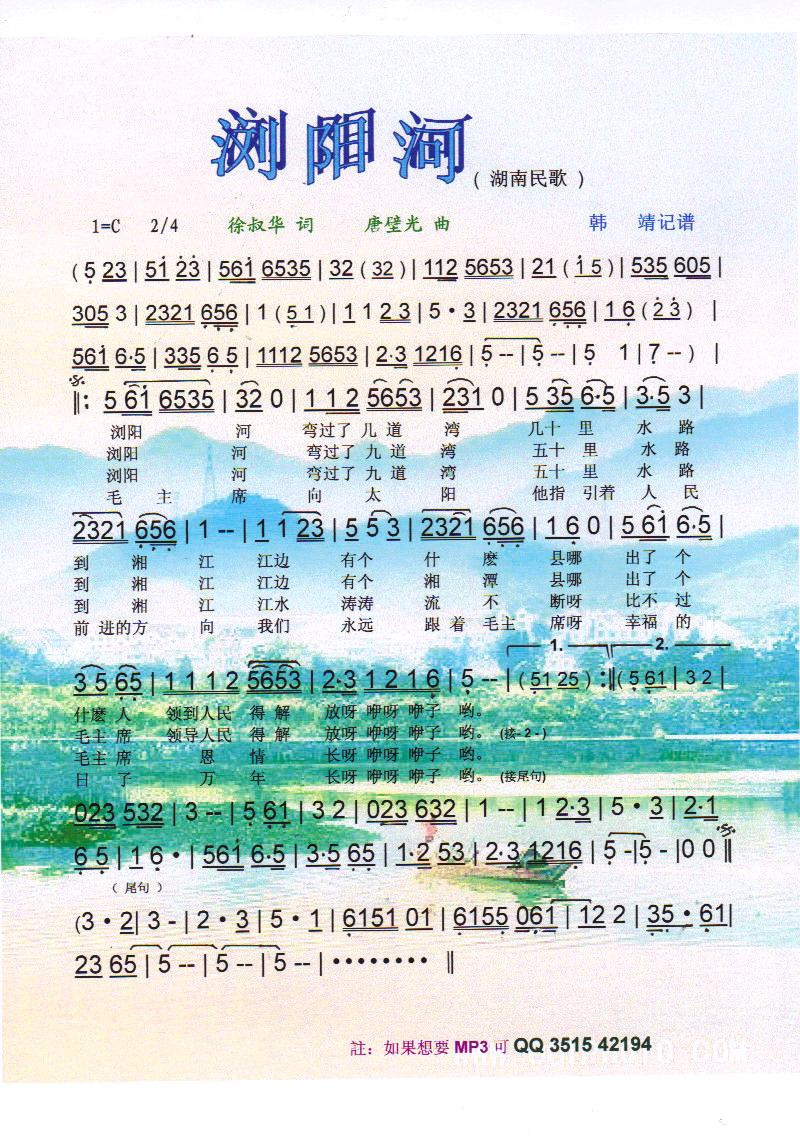 浏阳河
( 湖南民歌 )
1=C 2/4 徐叔华 词 唐璧光 曲 韩 靖记谱
( 5 23 | 51 23 | 561 6535 | 32 ( 32 ) | 112 5653 | 21 ( 15 ) | 535 605 |
305 3 | 2321 656 | 1 ( 51 ) | 1 1 2 3 | 5 · 3 | 2321 656 | 1 6 ( 23 ) |
561 6·5 | 335 6 5 | 1112 5653 | 2·3 1216 | 5 -- | 5 -- | 5 1 | 7 -- ) |
‖: 5 61 6535 | 32 0 | 1 1 2 5653 | 231 0 | 5 35 6·5 | 3·5 3 |
浏阳 河 弯过了 几 道 湾 几十 里 水 路
浏阳 河 弯过了 九 道 湾 五十 里 水 路
浏阳 河 弯过了 九 道 湾 五十 里 水 路
毛 主 席 向 太 阳 他指 引着 人 民
2321 656 | 1 -- | 1 1 23 | 5 5 3 | 2321 656 | 1 6 0 | 5 61 6·5 |
到 湘 江 江边 有个 什 麽 县哪 出了 个
到 湘 江 江边 有个 湘 潭 县哪 出了 个
到 湘 江 江水 涛涛 流 不 断呀 比不 过
前 进的方 向 我们 永远 跟 着 毛主 席呀 幸福 的
1. 2.
3 5 65 | 1 1 1 2 5653 | 2·3 1 2 1 6 | 5 -- | ( 51 25 ) :‖ ( 5 61 | 3 2 |
什麽 人 领到人民 得 解 放呀 咿呀 咿子 哟。
毛主 席 领导人民 得 解 放呀 咿呀 咿子 哟。 (接- 2 - )
毛主 席 恩 情 长呀 咿呀 咿子 哟。
日 了 万 年 长呀 咿呀 咿子 哟。 (接尾句)
023 532 | 3 -- | 5 61 | 3 2 | 023 632 | 1 -- | 1 2·3 | 5 · 3 | 2·1
6 5 | 1 6 · | 561 6·5 | 3·5 65 | 1·2 53 | 2·3 1216 | 5 -| 5 - |0 0 ‖
( 尾句 )
(3 · 2| 3 - | 2 · 3 | 5 · 1 | 6151 01 | 6155 061 | 12 2 | 35 · 61|
23 65 | 5 -- | 5 -- | 5 -- | 5 -- | ········ ‖
註：如果想要 MP3 可 QQ 3515 42194